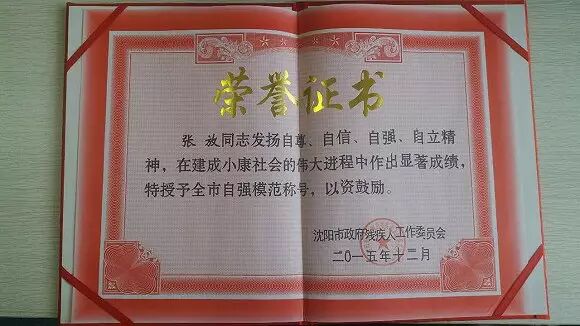 荣誉证书
张放同志发扬自尊、自信、自强、自立精
神，在建成小康社会的伟大进程中作出显著成绩，
特授予全市自强模范称号，以资鼓励。
沈阳市政府残疾人工作委员会
二〇一五年十二月